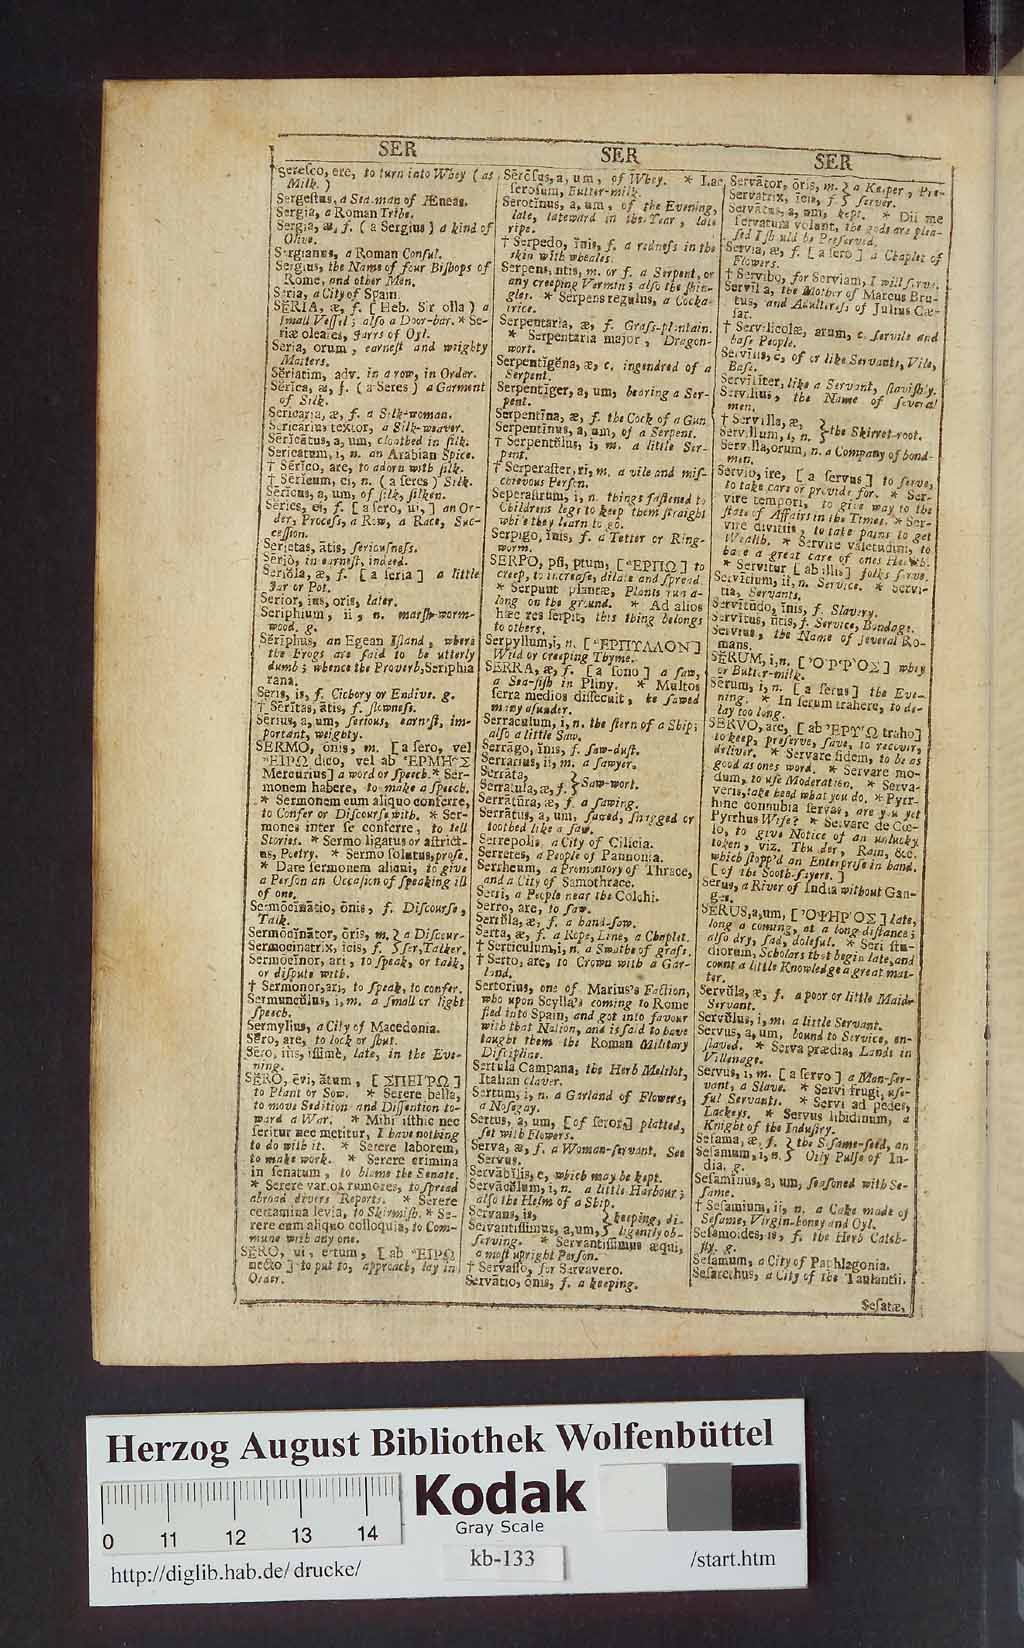 SER
Sereſco, ere, to turn into Whey (as
Milk.)
Sergeſtus, a Sea-man of Æneas.
Sergia, a Roman Tribe.
Sergia, æ, f. (a Sergius) a kind of
Olive.
Sergianus, a Roman Conſul.
Sergius, the Name of four Biſhops of
Rome, and other Men.
Seria, a City of Spain.
SERIA, æ, f. [Heb. Sir olla] a
ſmall Veſſel; alſo a Door-bar. * Se-
riæ oleares, Jarrs of Oyl.
Seria, orum, earneſt and weighty
Matters.
Sĕriatim, adv. in a row, in Order.
Sērica, æ, f. (a Seres) a Garment
of Silk.
Sericaria, æ, f. a Silk-woman.
Sericarius textor, a Silk-weaver.
Sēricātus, a, um, cloathed in ſilk.
Sericatum, i, n. an Arabian Spice.
† Sērico, are, to adorn with ſilk.
† Sēricum, ci, n. (a ſeres) Silk.
Sēricus, a, um, of ſilk, ſilken.
Series, ei, f. [a ſero, ui,] an Or-
der, Proceſs, a Row, a Race, Suc-
ceſſion.
Serietas, ātis, ſeriouſneſs.
Sēriò, in earneſt, indeed.
Seriŏla, æ, f. [a ſeria] a little
Jar or Pot.
Serior, ius, oris, later.
Seriphium, ii, n. marſh-worm-
wood. g.
Sĕriphus, an Egean Iſland, where
the Frogs are ſaid to be utterly
dumb; whence the Proverb, Seriphia
rana.
Seris, is, f. Cichory or Endive. g.
† Sēritas, ātis, f. ſlowneſs.
Sērius, a, um, ſerious, earneſt, im-
portant, weighty.
SERMO, ōnis, m. [a ſero, vel
ἙΙΡΩ dico, vel ab ἙΡΜΗΣ
Mercurius] a word or ſpeech. * Ser-
monem habere, to make a ſpeech.
* Sermonem cum aliquo conferre,
to Confer or Diſcourſe with. * Ser-
mones inter ſe conferre, to tell
Stories. * Sermo ligatus or aſtrict-
us, Poetry. * Sermo ſolutus, proſe.
* Dare ſermonem alicui, to give
a Perſon an Occaſion of ſpeaking ill
of one.
Sermōcinātio, ōnis, f. Diſcourſe,
Talk.
Sermōcinātor, ōris, m. } a Diſcour-
Sermocinatrix, icis, f. } ſer, Talker.
Sermocinor, ari, to ſpeak, or talk,
or diſpute with.
† Sermonor, ari, to ſpeak, to confer.
Sermuncŭlus, i, m. a ſmall or light
ſpeech.
Sermylius, a City of Macedonia.
Sĕro, are, to lock or ſhut.
Sero, iùs, iſſimè, late, in the Eve-
ning.
SERO, ēvi, ătum, [ΣΠΕΙΡΩ]
to Plant or Sow. * Serere bella,
to move Sedition and Diſſention to-
ward a War. * Mihi iſthic nec
ſeritur nec metitur, I have nothing
to do with it. * Serere laborem,
to make work. * Serere crimina
in ſenatum, to blame the Senate.
* Serere varios rumores, to ſpread
abroad divers Reports. * Serere
certamina levia, to Skirmiſh. * Se-
rere cum aliquo colloquia, to Com-
mune with any one.
SERO, ui, ertum, [ab ἙΙΡΩ
necto] to put to, approach, lay in
Order.
SER
Sērōſus, a, um, of Whey. * Lac
ſeroſum, Butter-milk.
Serotĭnus, a, um, of the Evening,
late, lateward in the Year, late
ripe.
† Serpedo, ĭnis, f. a redneſs in the
skin with wheales.
Serpens, ntis, m. or f. a Serpent, or
any creeping Vermin; alſo the ſhin-
gles. * Serpens regulus, a Cocka-
trice.
Serpentaria, æ, f. Graſs-plantain.
* Serpentaria major, Dragon-
wort.
Serpentigĕna, æ, c. ingendred of a
Serpent.
Serpentiger, a, um, bearing a Ser-
pent.
Serpentina, æ, f. the Cock of a Gun
Serpentīnus, a, um, of a Serpent.
† Serpentŭlus, i, m. a little Ser-
pent.
† Serperaſter, ri, m. a vile and miſ-
chievous Perſon.
Seperaſtrum, i, n. things faſtened to
Childrens legs to keep them ſtraight
while they learn to go.
Serpigo, ĭnis, f. a Tetter or Ring-
worm.
SERPO, pſi, ptum, [ἙΡΠΩ] to
creep, to increaſe, dilate and ſpread.
* Serpunt plantæ, Plants run a-
long on the ground. * Ad alios
hæc res ſerpit, this thing belongs
to others.
Serpyllum, i, n. [ἙΡΠΥΛΛΟΝ]
Wild or creeping Thyme.
SERRA, æ, f. [a ſono] a ſaw,
a Sea-fiſh in Pliny. * Multos
ſerra medios diſſecuit, he ſawed
many aſunder.
Serraculum, i, n. the ſtern of a Ship;
alſo a little Saw.
Serrāgo, ĭnis, f. ſaw-duſt.
Serrarius, ii, m. a ſawyer.
Serrāta, }
Serratula, æ, f. } Saw-wort.
Serratūra, æ, f. a ſawing.
Serrātus, a, um, ſawed, ſnigged or
toothed like a ſaw.
Serrepolis, a City of Cilicia.
Serretes, a People of Pannonia.
Serrheum, a Promontory of Thrace,
and a City of Samothrace.
Serri, a People near the Colchi.
Serro, are, to ſaw.
Serrŭla, æ, f. a hand-ſaw.
Serta, æ, f. a Rope, Line, a Chaplet.
† Serticulum, i, n. a Swathe of graſs.
† Serto, are, to Crown with a Gar-
land.
Sertorius, one of Marius's Faction,
who upon Scylla's coming to Rome
fled into Spain, and got into favour
with that Nation, and is ſaid to have
taught them the Roman Military
Diſcipline.
Sertula Campana, the Herb Melilot,
Italian claver.
Sertum, i, n. a Garland of Flowers,
a Noſegay.
Sertus, a, um, [of ſeror,] platted,
ſet with Flowers.
Serva, æ, f. a Woman-ſervant. See
Servus.
Servābĭlis, e, which may be kept.
Servācŭlum, i, n. a little Harbour;
alſo the Helm of a Ship.
Servans, is, } keeping, di-
Servantiſſimus, a, um, } ligently ob-
ſerving. * Servantiſſimus æqui,
a moſt upright Perſon.
† Servaſſo, for Servavero.
Servātio, ōnis, f. a keeping.
SER
Servātor, ōris, m. } a Keeper, Pre-
Servatrix, īcis, f. } ſerver.
Servātus, a, um, kept. * Dii me
ſervatum volunt, the gods are plea-
ſed I ſhould be Preſerved.
Servia, æ, f. [a ſero] a Chaplet of
Flowers.
† Servibo, for Serviam, I will ſerve.
Servilia, the Mother of Marcus Bru-
tus, and Adultereſs of Julius Cæ-
ſar.
† Servilicolæ, arum, c. ſervile and
baſe People.
Servīlis, e, of or like Servants, Vile,
Baſe.
Serviliter, like a Servant, ſlaviſhly.
Servilius, the Name of ſeveral
men.
† Servilla, æ, }
Servillum, i, n. } the Skirret-root.
Servilla, orum, n. a Company of bond-
men.
Servio, ire, [a ſervus] to ſerve,
to take care or provide for. * Ser-
vire tempori, to give way to the
ſtate of Affairs in the Times. * Ser-
vire divitiis, to take pains to get
Wealth. * Servire valetudini, to
have a great care of ones Health.
* Servitur [ab illis] folks ſerve.
Servitium, ii, n. Service. * Servi-
tia, Servants.
Servitūdo, ĭnis, f. Slavery.
Servitus, ūtis, f. Service, Bondage.
Servius, the Name of ſeveral Ro-
mans.
SERUM, i, n. [ὈΡΡΟΣ] whey
or Butter-milk.
Sērum, i, n. [a ſerus] the Eve-
ning. * In ſerum trahere, to de-
lay too long.
SERVO, are, [ab ἘΡΥΩ traho]
to keep, preſerve, ſave, to recover,
deliver. * Servare fidem, to be as
good as ones word. * Servare mo-
dum, to uſe Moderation. * Serva-
veris, take heed what you do. * Pyrr-
hine connubia ſervas, are you yet
Pyrrhus Wife? * Servare de Cœ-
lo, to give Notice of an unlucky
token, viz. Thunder, Rain, &c.
which ſtopp'd an Enterpriſe in hand.
[of the Sooth-ſayers.]
Serus, a River of India without Gan-
ges.
SERUS, a, um, [ὈΨΗΡΟΣ] late,
long a coming, at a long diſtance;
alſo dry, ſad, doleful. * Seri ſtu-
diorum, Scholars that begin late, and
count a little Knowledge a great mat-
ter.
Servŭla, æ, f. a poor or little Maid-
Servant.
Servŭlus, i, m. a little Servant.
Servus, a, um, bound to Service, en-
ſlaved. * Serva prædia, Lands in
Villenage.
Servus, i, m. [a ſervo] a Man-ſer-
vant, a Slave. * Servi frugi, uſe-
ful Servants. * Servi ad pedes,
Lackeys. * Servus libidinum, a
Knight of the Induſtry.
Seſama, æ, f. } the Seſame-ſeed, an
Seſamum, i, n. } Oily Pulſe of In-
dia. g.
Seſaminus, a, um, ſeaſoned with Se-
ſame.
† Seſamium, ii, n. a Cake made of
Seſame, Virgin-honey and Oyl.
Seſamoides, is, f. the Herb Catch-
fly. g.
Seſamum, a City of Paphlagonia.
Seſarethus, a City of the Taulantii.
Seſatæ,
Herzog August Bibliothek Wolfenbüttel
Kodak
Gray Scale
0 11 12 13 14
http://diglib.hab.de/drucke/
kb-133
/start.htm